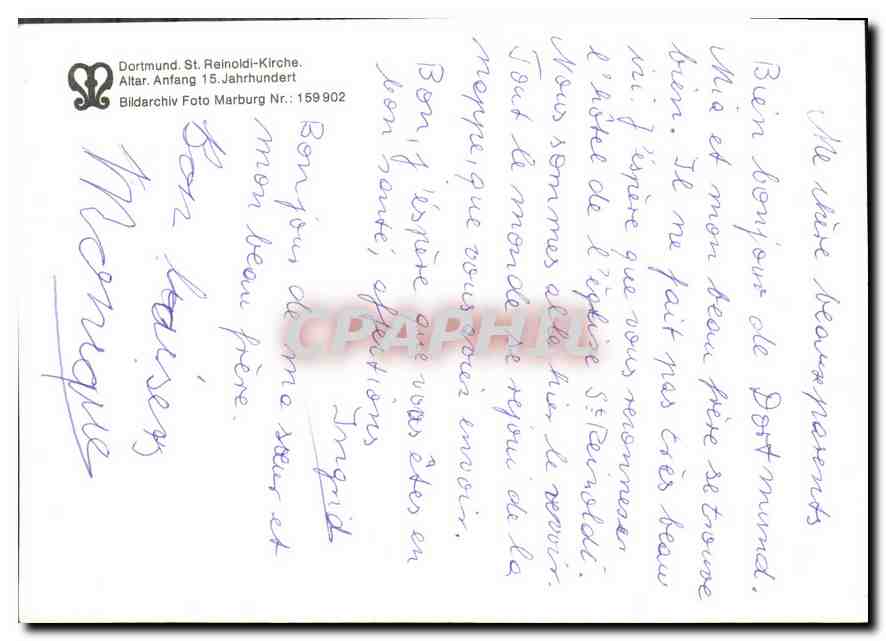 Dortmund. St. Reinoldi-Kirche.
Altar. Anfang 15. Jahrhundert
Bildarchiv Foto Marburg Nr.: 159 902
Me chère beaux parents
Bien bonjour de Dortmund.
Mia et mon beau frère se trouve
bien. Il ne fait pas très beau
ici. J'espère que vous reconnesser
l'hôtel de l'église St Reinoldi.
Nous sommes alle hier le revoir.
Tout le monde se rejoui de la
nappe, que vous avier envoir.
Bon, j'éspère que vous êtes en
bon santé, affections
Ingrid
Bonjour de ma sœur et
mon beau frère.
Bon baisers
Monique
CPAPHIL